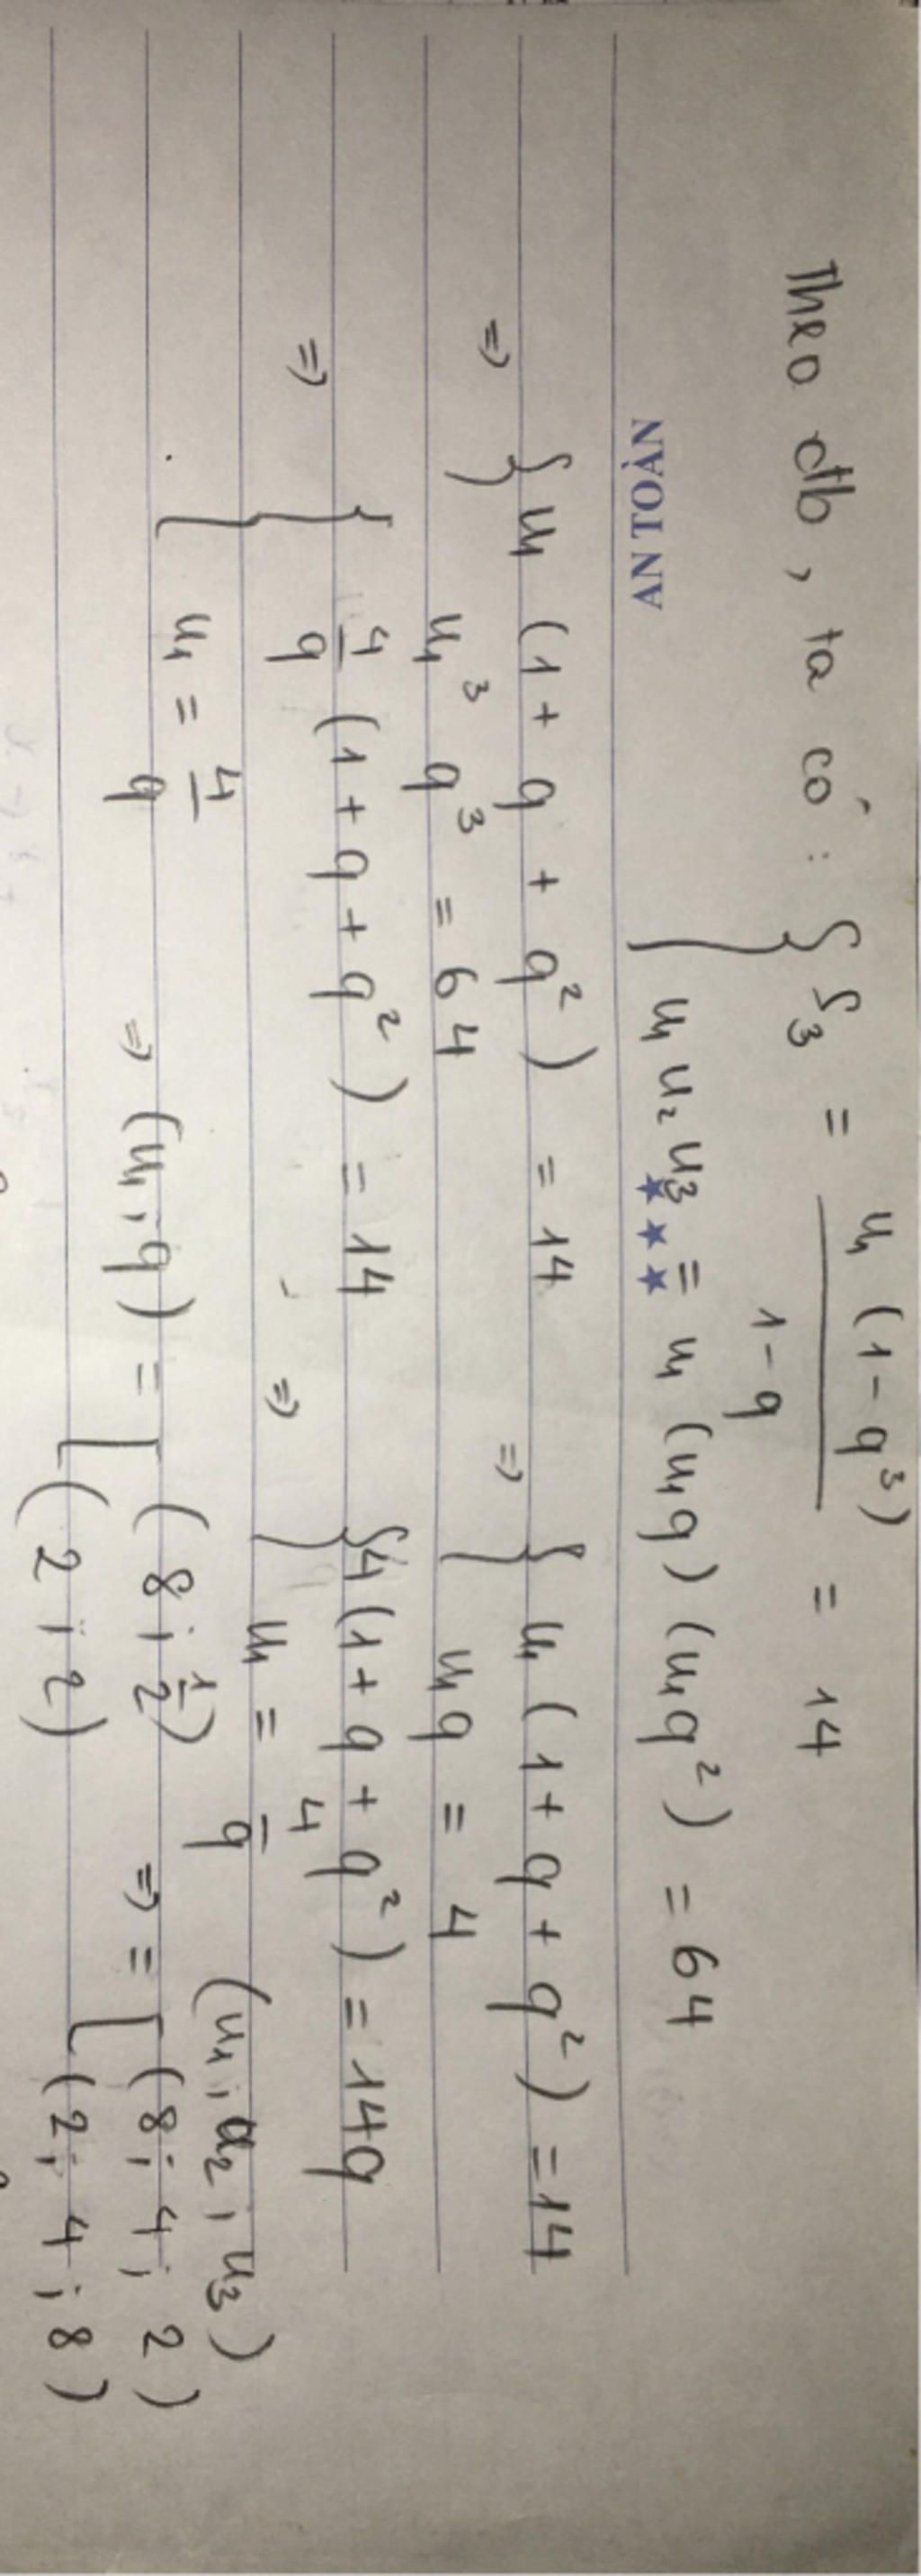 Theo đb, ta có: { S₃ = u₁(1-q³)/(1-q) = 14
{ u₁u₂u₃ = u₁(u₁q)(u₁q²) = 64
AN TOÀN ★★★
=> { u₁(1+q+q²) = 14 => { u₁(1+q+q²) = 14
{ u₁³q³ = 64 { u₁q = 4
=> { 4/q (1+q+q²) = 14 => { 4(1+q+q²) = 14q
{ u₁ = 4/q { u₁ = 4/q
=> (u₁; q) = [ (8; 1/2) => (u₁; u₂; u₃) = [ (8; 4; 2)
[ (2; 2) [ (2; 4; 8)